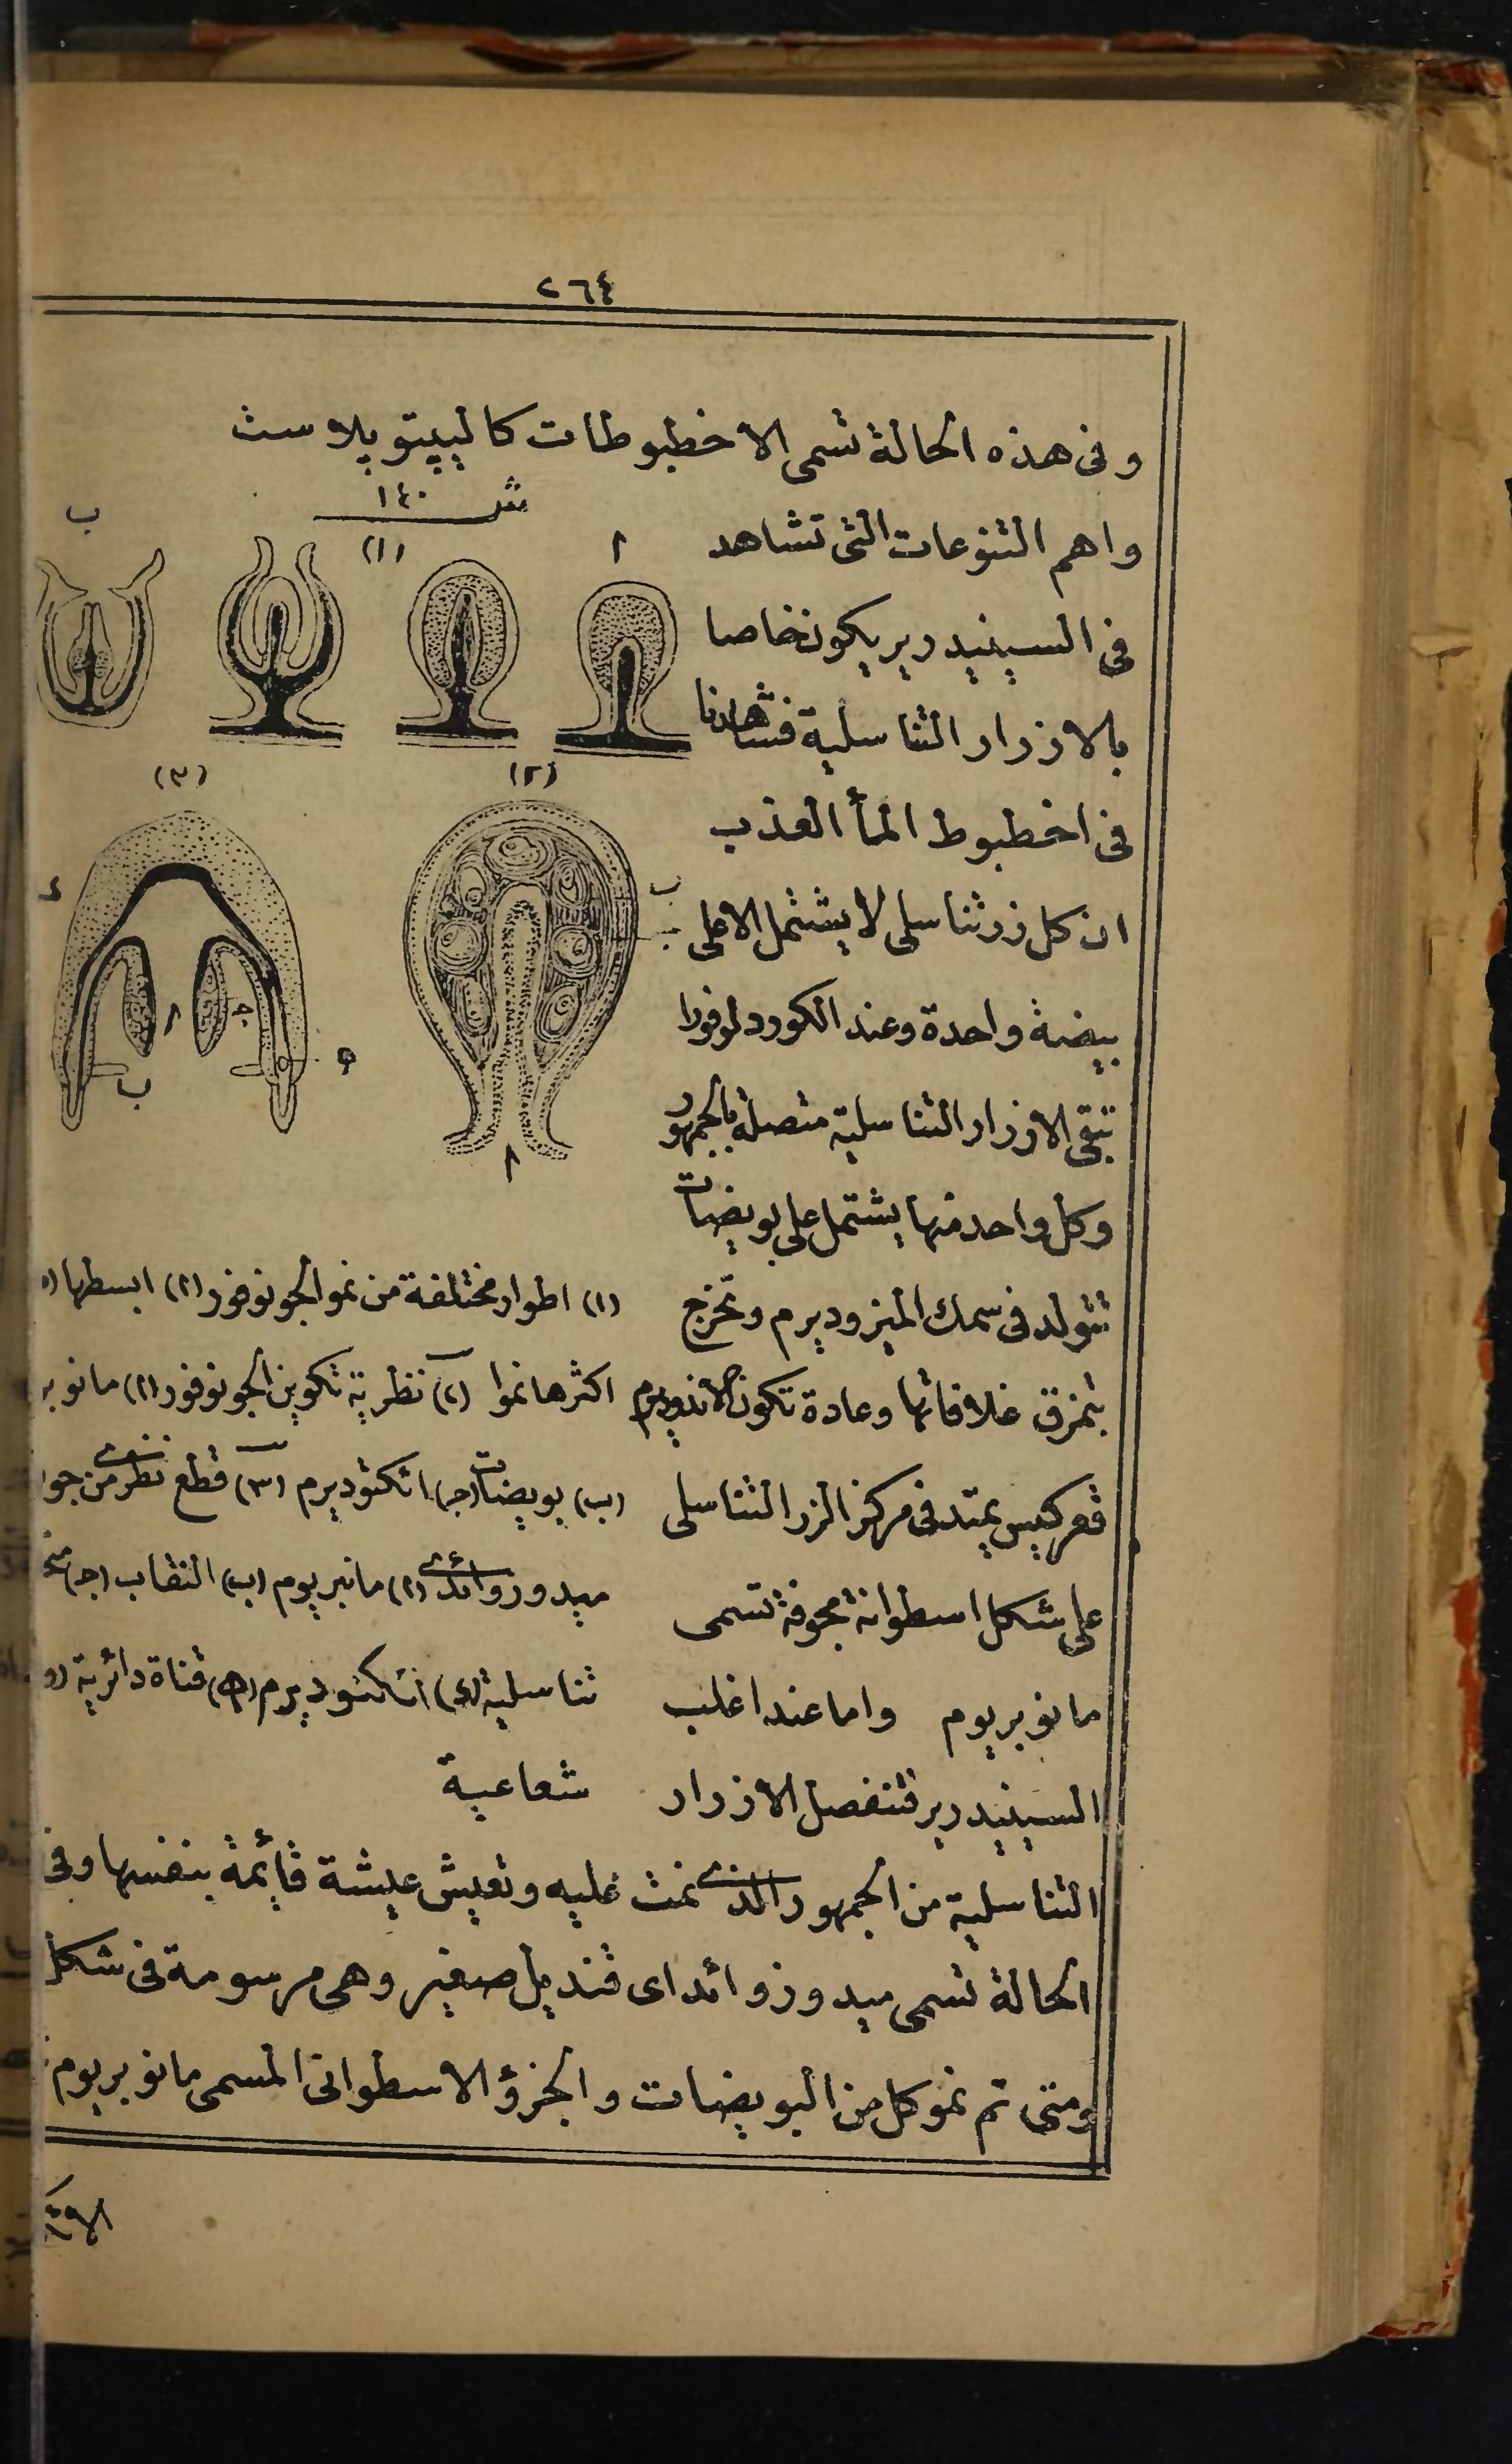 ٢٦٤
وفى هذه الحالة تسمى الاخطبوطات كالبپتوپلاست
واهم التنوعات التى تشاهد
فى السينيدرير يكون خاصا
بالازرار التناسلية فشاهدنا
فى اخطبوط المأ العذب
ان كل زر تناسلى لا يشتمل الا على
بيضة واحدة وعند الكوردلوفورا
تبقى الازرار التناسلية متصلة بالجمهور
وكل واحد منها يشتمل على بويضات
تتولد فى سمك الميزوديرم وتخرج
بتمزق غلافاتها وعادة تكون الاندوديرم
قعر كيس يمتد فى مركز الزر التناسلى
على شكل اسطوانة مجوفة تسمى
مانوبريوم واما عند اغلب
السينيدرير فتنفصل الازرار
شـ ١٤٠
ب
(١)
ا
(٣)
(٢)
د
ب
جـ
ا
جـ
ه
ب
ا
(١) اطوار مختلفة من نمو الجونوفور (ا) ابسطها
اكثرها نموا (٢) نظرية تكوين الجونوفور (ا) مانوبر
(ب) بويضات (جـ) اكتوديرم (٣) قطع نظرى من جو
ميدوزوائدى (ا) مانبريوم (ب) النقاب (جـ)
تناسلية (د) اكتوديرم (ه) قناة دائرية (و
شعاعية
التناسلية من الجمهور الذى نمت عليه وتعيش عيشة قائمة بنفسها وفى
الحالة تسمى ميدوزوائد اى قنديل صغير وهى مرسومة فى شكل
ومتى تم نمو كل من البويضات والجزؤ الاسطوانى المسمى مانوبريوم